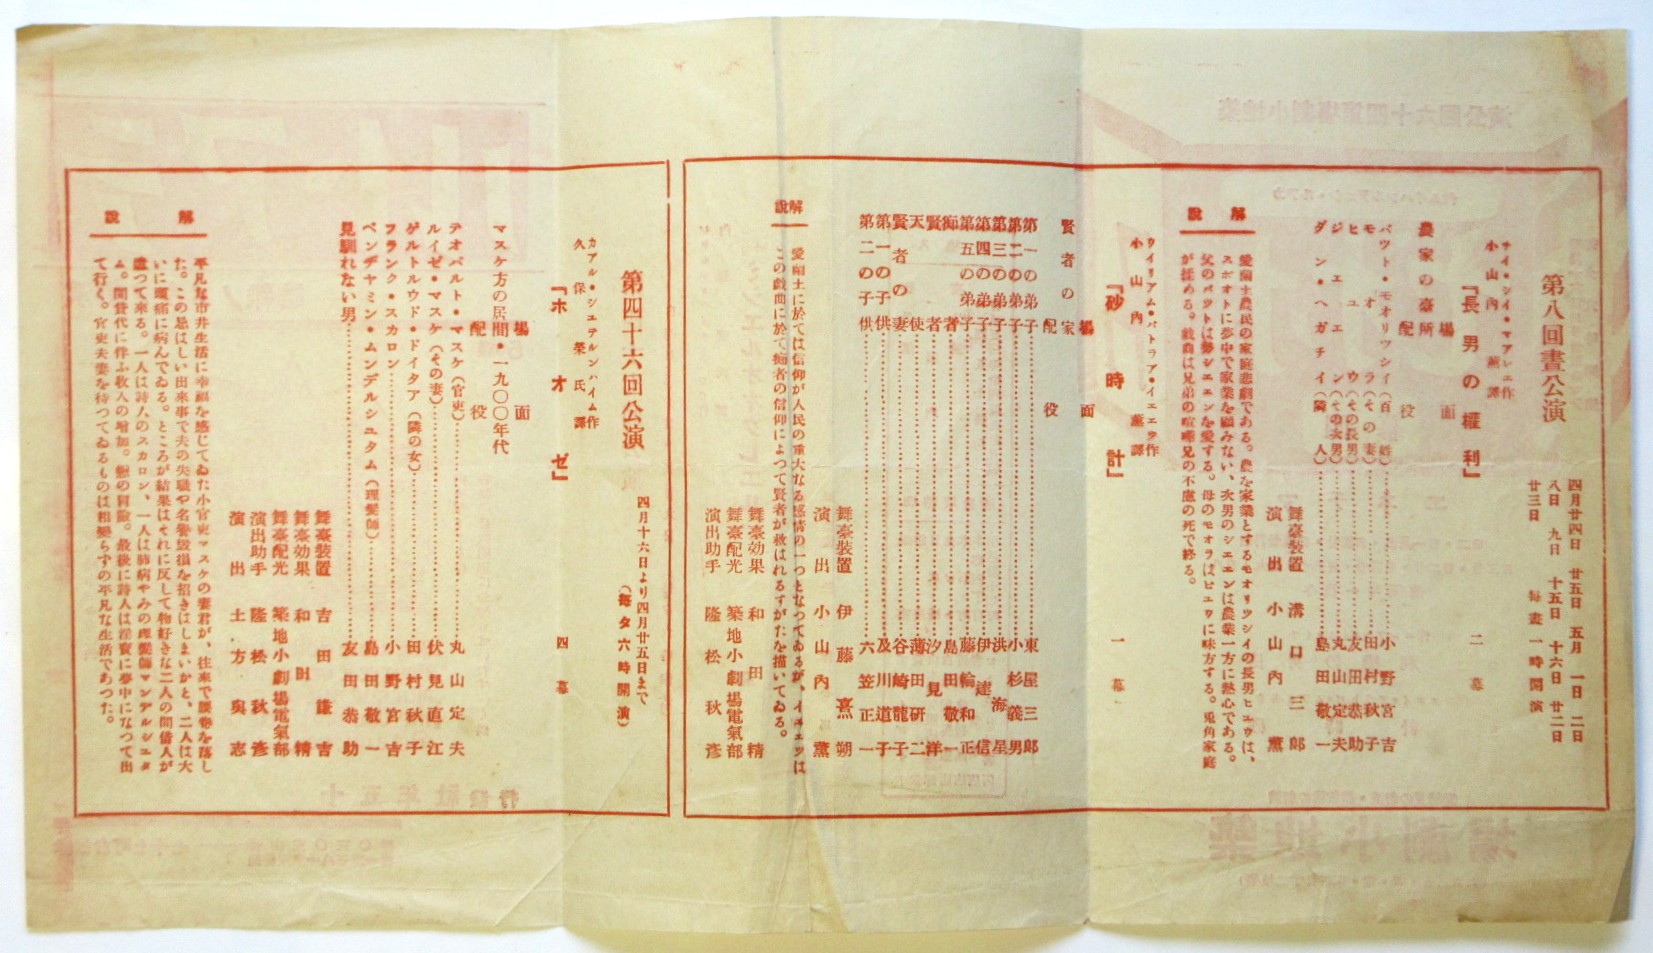 第八回晝公演
四月廿四日 廿五日 五月一日 二日
八日 九日 十五日 十六日 廿二日
廿三日 毎晝一時開演
テイ・シイ・マアレエ作
小山內薰譯
『長男の權利』 二幕
場面
農家の臺所
配役
パツト・モオリツシイ(百姓)………小野宮吉
モオラ(その妻)………田村秋子
ヒユウ(その長男)………友田恭助
ジエエン(その次男)………丸山定夫
ダン・ヘガチイ(隣人)………島田敬一
舞臺裝置 溝口三郎
演出 小山內薰
解說
愛蘭土農民の家庭悲劇である。農を家業とするモオリツシイの長男ヒユウは、
スポオトに夢中で家業を顧みない、次男のシエエンは農業一方に熱心である。
父のパツトは勢シエエンを愛する。母のモオラはヒユウに味方する。兎角家庭
が揉める。戲曲は兄弟の喧嘩兄の不慮の死で終る。
ウイリアム・バトラア・イエエツ作
小山內薰譯
『砂時計』 一幕
場面
賢者の家
配役
第一の弟子………東屋三郎
第二の弟子………小杉義男
第三の弟子………洪海星
第四の弟子………伊達信
第五の弟子………藤輪和正
痴者………島田敬一
賢者………汐見洋
天使………薄田研二
賢者の妻………谷崎龍子
第一の子供………及川道子
第二の子供………六笠正一
舞臺裝置 伊藤熹朔
演出 小山內薰
舞臺効果 和田精
舞臺配光 築地小劇場電氣部
演出助手 隆松秋彥
解說
愛蘭土に於ては信仰が人民の重大なる感情の一つとなつてゐるが、イエエツは
この戲曲に於て痴者の信仰によつて賢者が救はれるすがたを描いてゐる。
第四十六回公演
四月十六日より四月廿五日まで
(毎夕六時開演)
カアル・シユテルンハイム作
久保榮氏譯
『ホオゼ』 四幕
場面
マスケ方の居間・一九〇〇年代
配役
テオバルト・マスケ(官吏)………丸山定夫
ルイゼ・マスケ(その妻)………伏見直江
ゲルトルウド・ドイタア(隣の女)………田村秋子
フランク・スカロン………小野宮吉
ベンヂヤミン・ムンデルシユタム(理髮師)………島田敬一
見馴れない男………友田恭助
舞臺裝置 吉田謙吉
舞臺効果 和田精
舞臺配光 築地小劇場電氣部
演出助手 隆松秋彥
演出 土方與志
解說
平凡な市井生活に幸福を感じてゐた小官吏マスケの妻君が、往來で腰卷を落し
た。この忌はしい出來事で夫の失職や名譽毀損を招きはしまいかと、二人は大
いに頭痛に病んでゐる。ところが結果はそれに反して物好きな二人の間借人が
迷つて來る。一人は詩人のスカロン、一人は肺病やみの理髮師マンデルシユタ
ム。間貸代に伴ふ收入の增加。戀の冒險。最後に詩人は淫賣に夢中になつて出
て行く。官吏夫妻を待つてゐるものは相變らずの平凡な生活であつた。